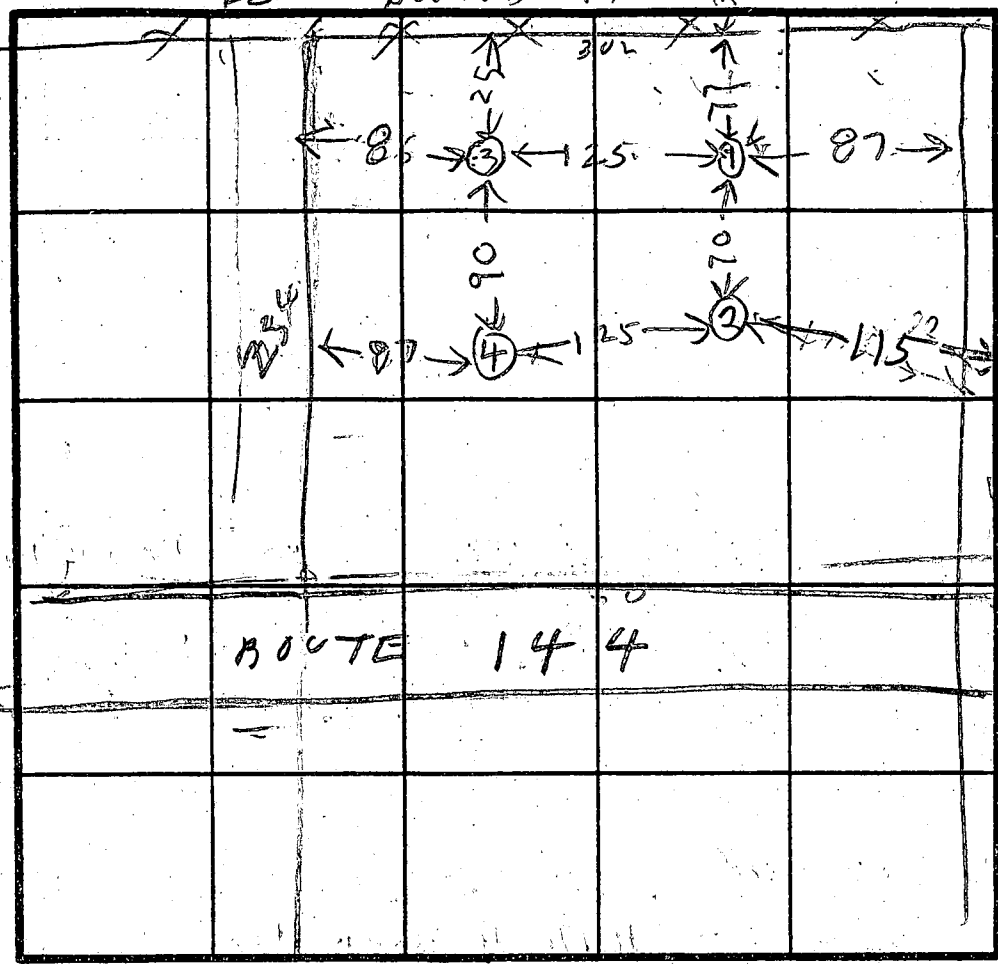 302
25
77
86 3 125 1 87
90
70
254
87 4 125 2 115 22
ROUTE 144